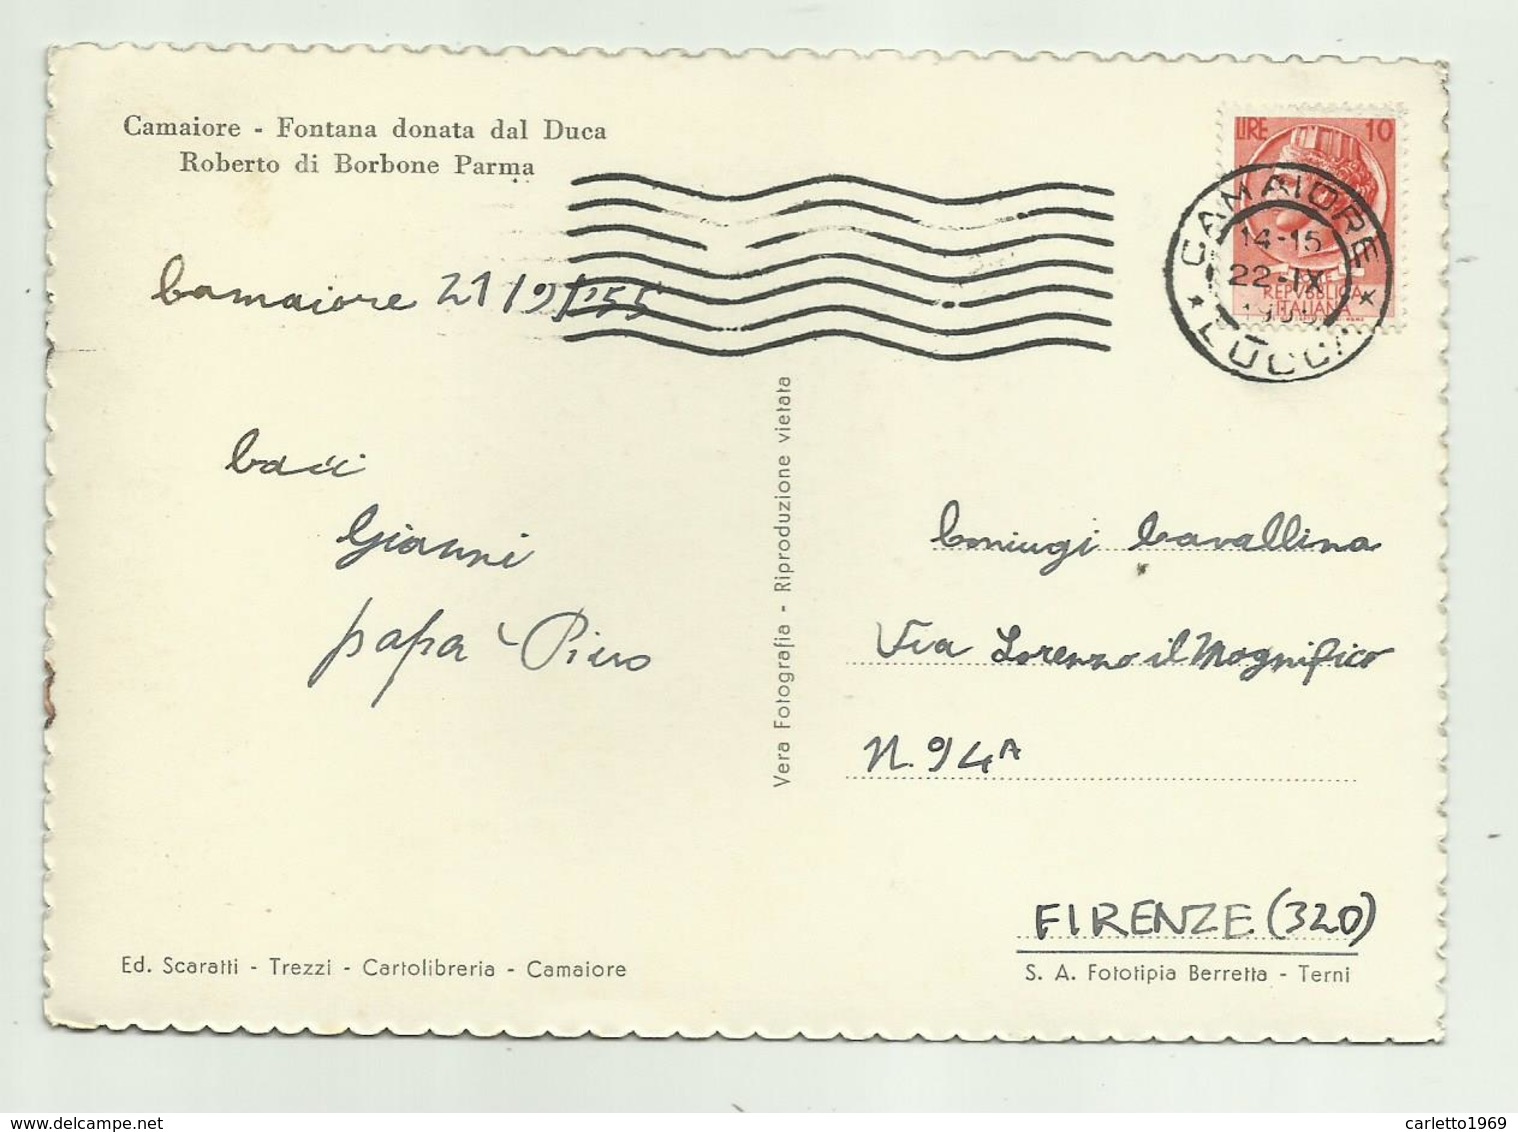 Camaiore - Fontana donata dal Duca
Roberto di Borbone Parma
LIRE 10
CAMAIORE
14-15
22-IX
LUCCA
REPVBBLICA
ITALIANA
Camaiore 21/9/'55
baci
Gianni
papà Piero
Vera Fotografia - Riproduzione vietata
Coniugi Cavallina
Via Lorenzo il Magnifico
N. 94A
FIRENZE (320)
Ed. Scaratti - Trezzi - Cartolibreria - Camaiore
S. A. Fototipia Berretta - Terni
www.delcampe.net
carletto1969